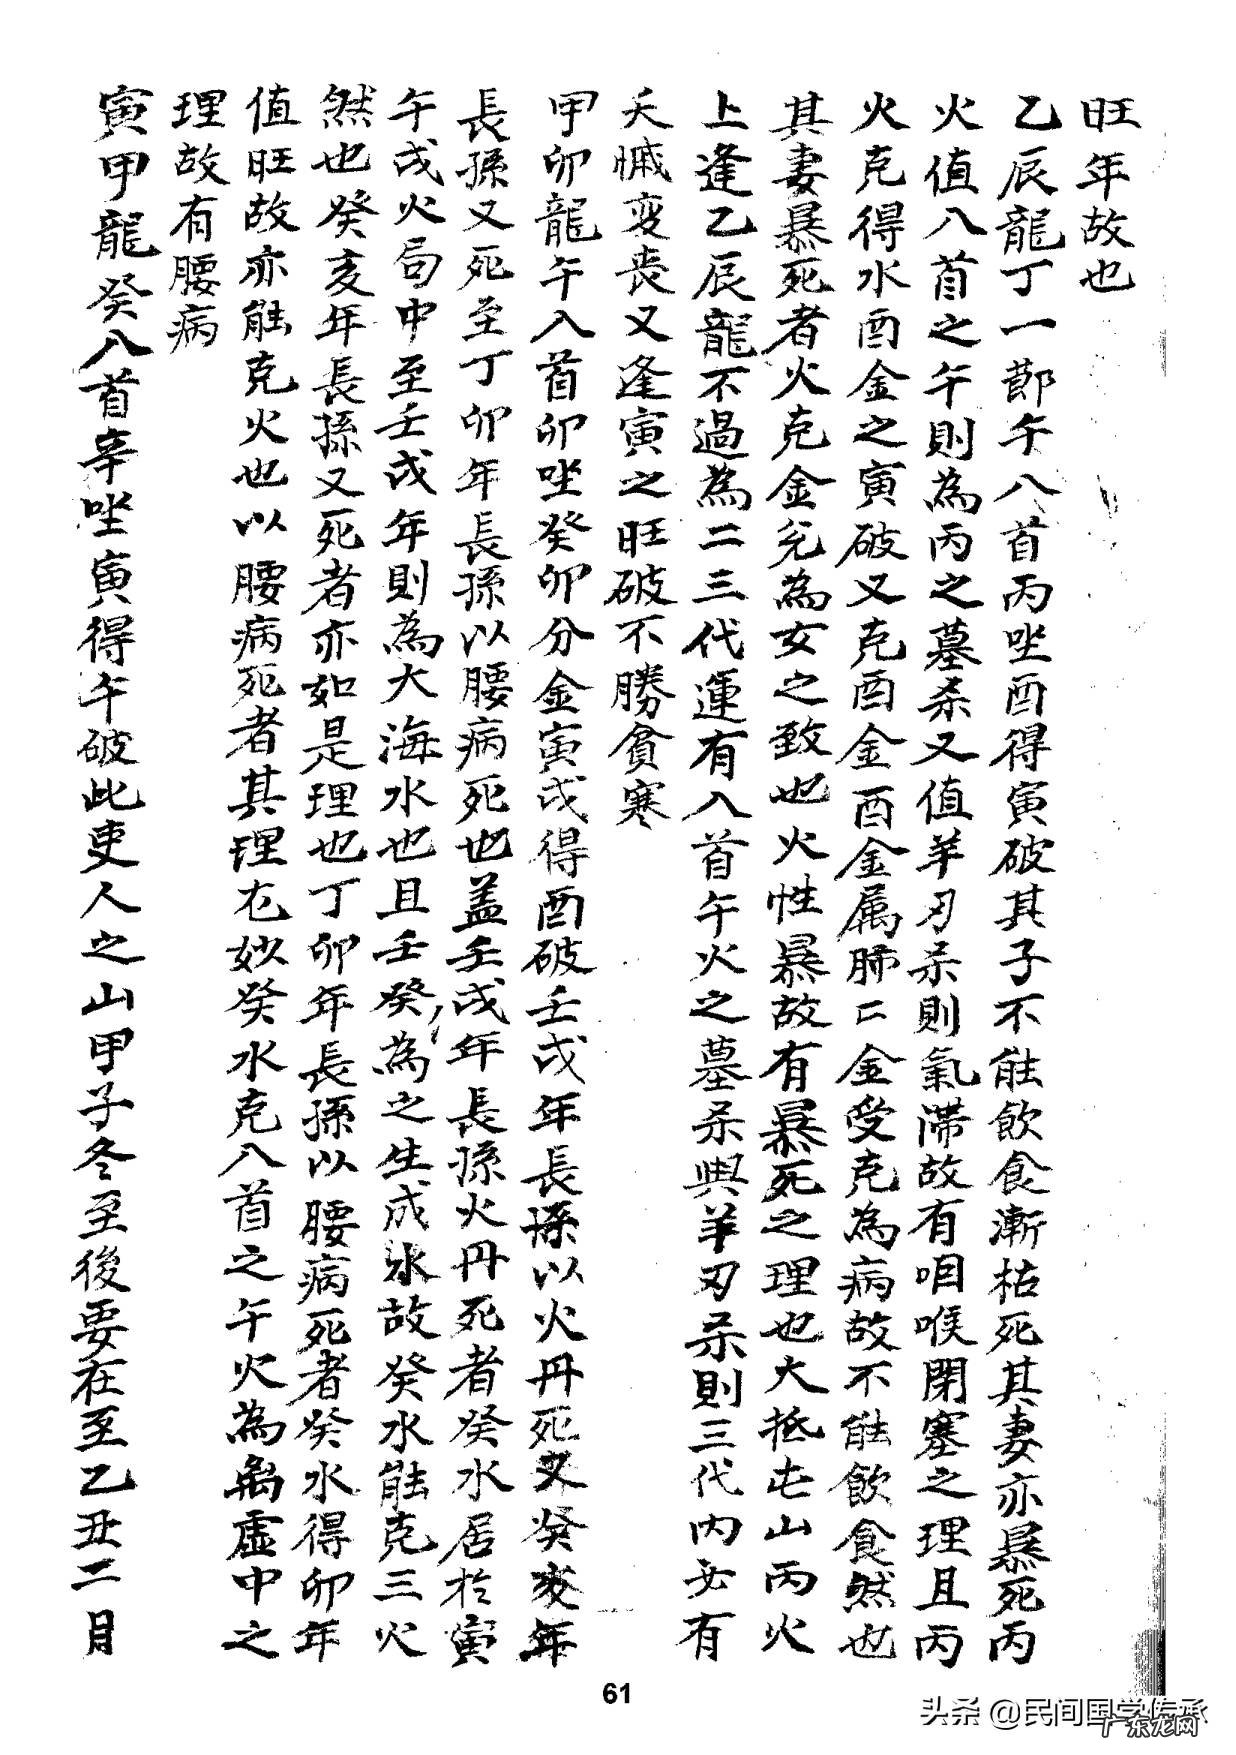 旺年故也
乙辰龍丁一節午八首丙坐酉得寅破其子不能飲食漸枯死其妻亦暴死丙
火值八首之午則為丙之墓杀又值羊刃杀則氣滯故有咽喉閉塞之理且丙
火克得水酉金之寅破又克酉金酉金属肺二金受克為病故不能飲食然也
其妻暴死者火克金兌為女之致也火性暴故有暴死之理也大抵屯山丙火
上逢乙辰龍不過為二三代運有入首午火之墓杀與羊刃杀則三代內必有
夭慽变喪又逢寅之旺破不勝貧寒
甲卯龍午入首卯坐癸卯分金寅戌得酉破壬戌年長孫以火丹死又癸亥年
長孫又死至丁卯年長孫以腰病死也盖壬戌年長孫火丹死者癸水居於寅
午戌火局中至壬戌年則為大海水也且壬癸為之生成水故癸水能克三火
然也癸亥年長孫又死者亦如是理也丁卯年長孫以腰病死者癸水得卯年
值旺故亦能克火也以腰病死者其理尤妙癸水克入首之午火為离虛中之
理故有腰病
寅甲龍癸八首辛坐寅得午破此吏人之山甲子冬至後要在至乙丑二月
61
头条@民间国学传承
广东龙网